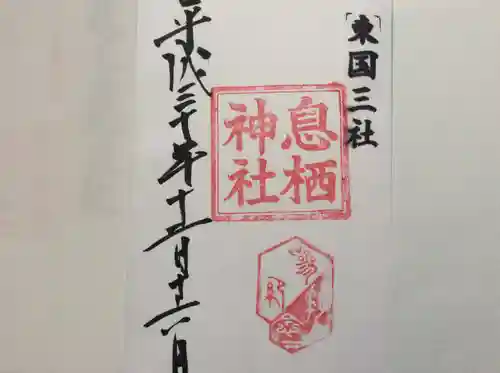 東国三社
息栖
神社
平成三十年十一月十六日